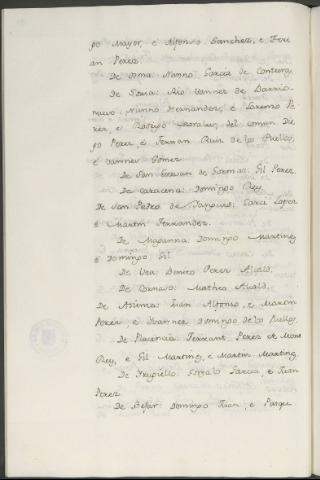 po Mayor, e Alfonso Sanchez, e Ferr
an Perez.
De Soma: Nunno Garcia de Contreras,
De Soria: Rio Vanner de Barrio
nuevo Nunno Hernandez, e Lorenzo Pe
rez, e Rodrigo Morales, del comun Die
go Perez, e Ferran Ruiz de los Puellos,
e Vannes Gomez.
De San Estevan de Gormaz: Gil Perez.
De Caracena: Domingo Rey.
De San Pedro de Yanguas: Garci Lopez
e Martin Ferrandez.
De Maganna: Domingo Martinez
e Domingo Gil
De Vea: Benito Perez Alcald.
De Cornago: Matheo Alcald.
De Atienza: Iuan Alfonso, e Martin
Perez, e Ivannez Domingo de los Puellos.
De Placencia: Ferrant Perez de Mon
Rey, e Gil Martinz, e Martin Martinz.
De Trugiello: Gonzalo Garcia, e Iuan
Perez
De Bejar: Domingo Iuan, e Pasqu